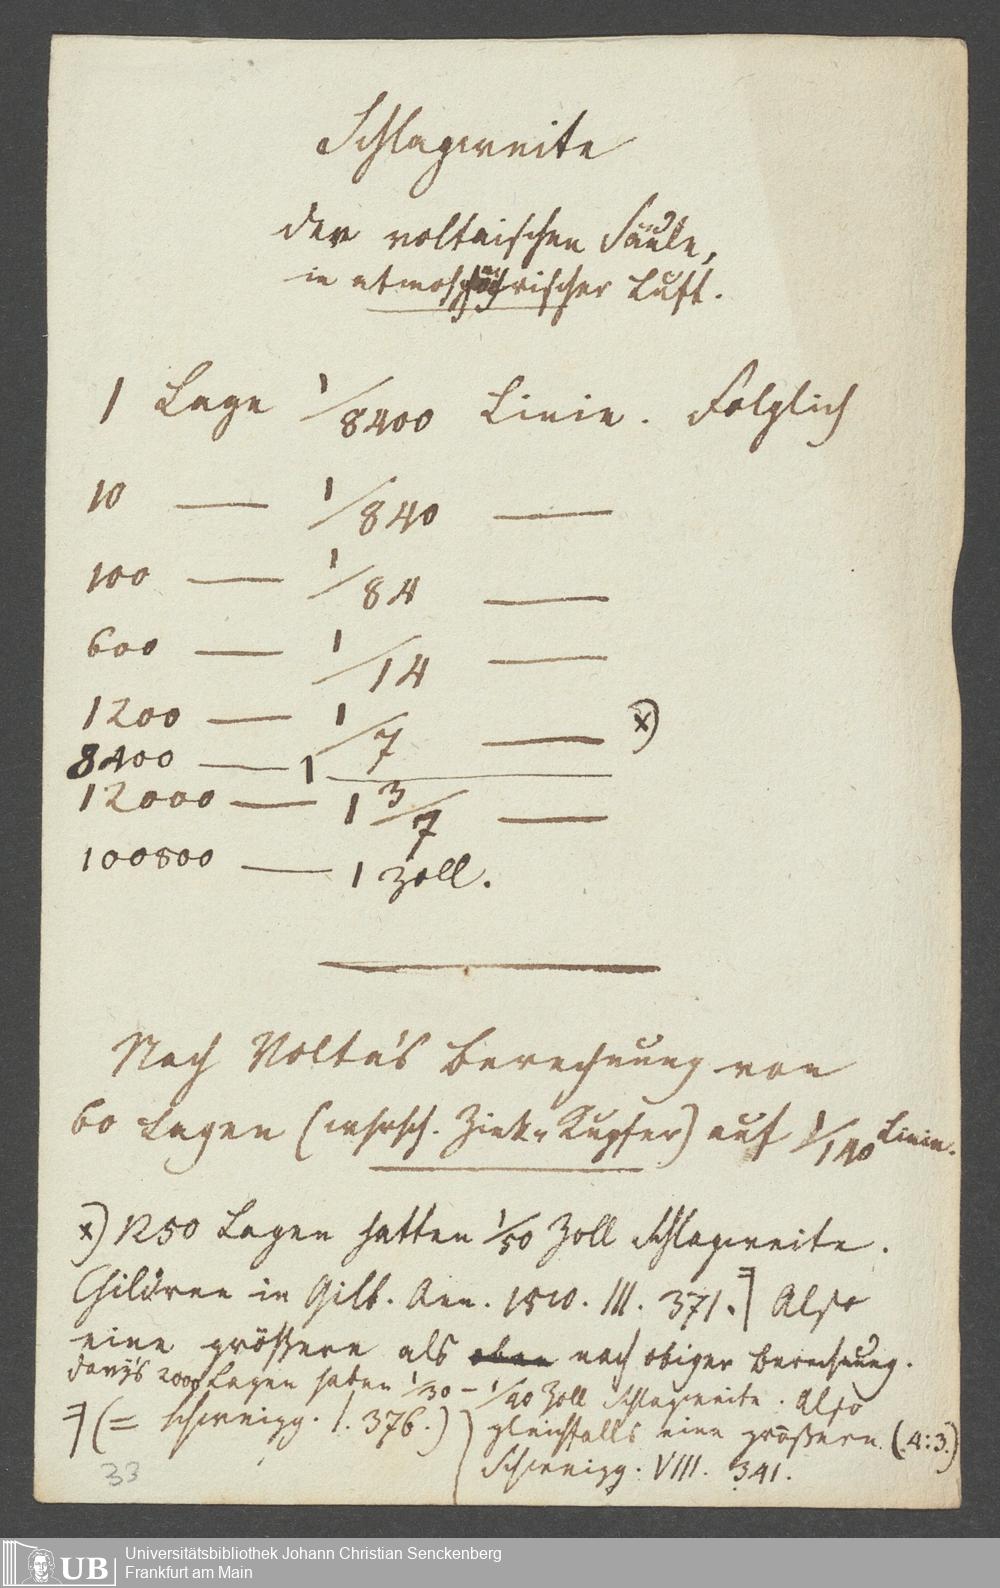 Schlagweite
der voltaischen Säule,
in atmosphärischer Luft.
1 Lage 1/8400 Linie. Folglich
10 — 1/840 —
100 — 1/84 —
600 — 1/14 —
1200 — 1/7 — x)
8400 — 1 —
12000 — 1 3/7 —
100800 — 1 Zoll.
Nach Volta's Berechnung von
60 Lagen (insofch. Zink u. Kupfer) auf 1/140 Linie.
x) 1250 Lagen hatten 1/50 Zoll Schlagweite.
Children in Gilb. Ann. 1810. III. 371. Also
eine größere als oben nach obiger Berechnung.
Davy's 2000 Lagen haben 1/30 – 1/40 Zoll Schlagweite. Also
(= Schweigg. I. 376.) gleichfalls eine größere. (4:3.)
Schweigg. VIII. 341.
33
UB Universitätsbibliothek Johann Christian Senckenberg
Frankfurt am Main